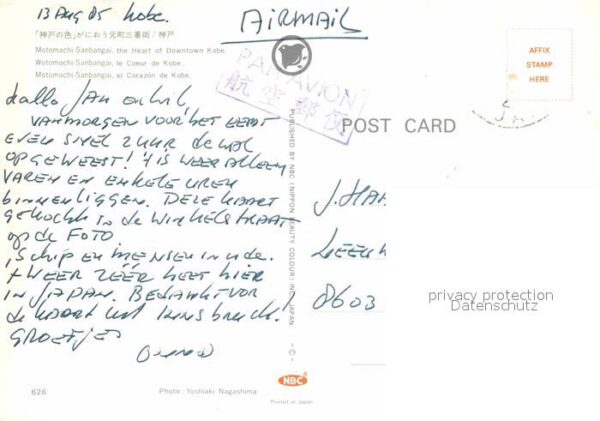 13 Aug 85 Kobe.
AIRMAIL
「神戸の色」がにおう元町三番街/神戸
Motomachi-Sanbangai, the Heart of Downtown Kobe.
Motomachi-Sanbangai, le Coeur de Kobe.
Motomachi-Sanbangai, el Corazón de Kobe.
PAR AVION
航空郵便
AFFIX
STAMP
HERE
POST CARD
Hallo Jan en Wil,
VANMORGEN VOOR HET EERST
EVEN SNEL naar de wal
OPGEWEEST! 't IS WEER ALLEEN
VAREN EN ENKELE UREN
BINNENLIGGEN. DEZE KAART
gekocht in de WINKELSTRAAT
op de FOTO
SCHIP EN MENSEN in orde.
't WEER ZÉÉR HEET HIER
IN JAPAN. BEDANKT VOOR
de KAART uit Innsbruck!
GROETJES
J. HAA
8603
PUBLISHED BY NBC (NIPPON BEAUTY COLOUR) IN JAPAN
privacy protection
Datenschutz
NBC
626
Photo: Yoshiaki Nagashima
Printed in Japan